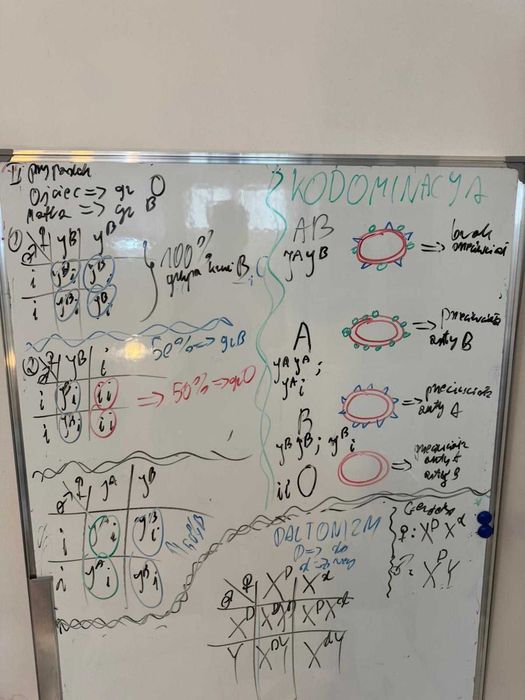 II przypadek
Ojciec => gr O
Matka => gr B
①
♀ yB yB
i yBi yBi
i yBi yBi
100%
grupa krwi B
②
♀ yB i
i yBi ii
i ii
50% => grB
=> 50% => grO
♀ yA yB
i yAi yBi
i yAi yBi
50% B
KODOMINACJA
AB
yA yB
=> brak przeciwciał
A
yA yA;
yAi
=> przeciwciała
anty B
B
yB yB; yBi
=> przeciwciała
anty A
ii O
=> przeciwciała
anty A
anty B
DALTONIZM
D =>
d =>
♀ XD Xd
XD XDXD XDXd
Y XDY XdY
♀: XD Xd
♂: XD Y